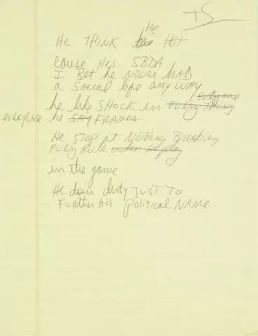 TS
He THINK He HOT
CAUSE Hes SBDA
I Bet he Never HAD
a Social life any WAY
he like SHOCK in every thing
everyone he SAY FRAMES
He STOP AT NOTHing Breaking
every Rule
in the game
He doin dirty JUST TO
FurtHer His Political NAME